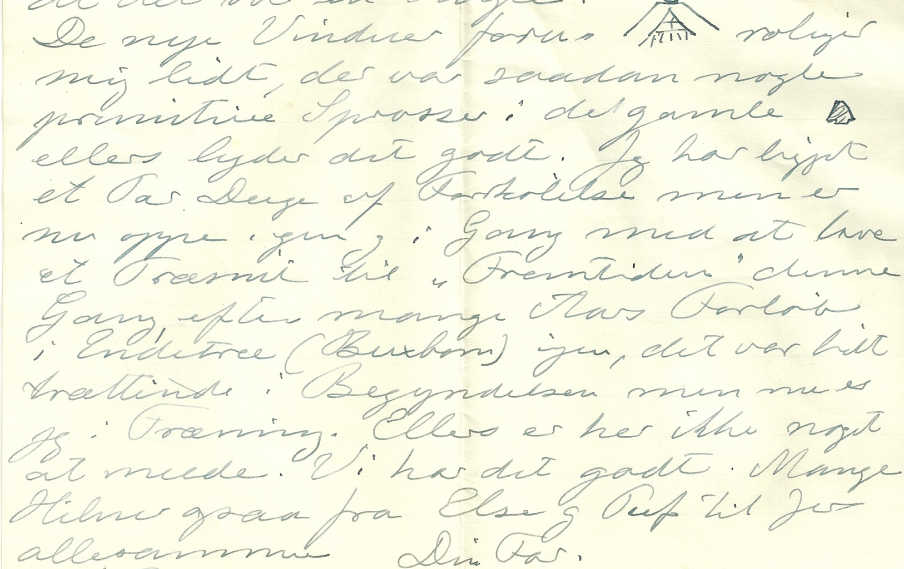 at det var en
De nye Vinduer forun roliger
mig lidt, der var saadan nogle
primitive Sprosser i det gamle
ellers lyder det godt. Jeg har ligget
et Par Dage af Forkølelse men er
nu oppe igen og i Gang med at lave
et Træsnit til "Fremtiden" denne
Gang efter mange Aars Forløb
i Endetræ (Buxbom) igen, det var lidt
trættende i Begyndelsen men nu er
jeg i Træning. Ellers er her ikke noget
at melde. Vi har det godt. Mange
Hilsner ogsaa fra Else og Puf til Jer
allesammen Din Far.